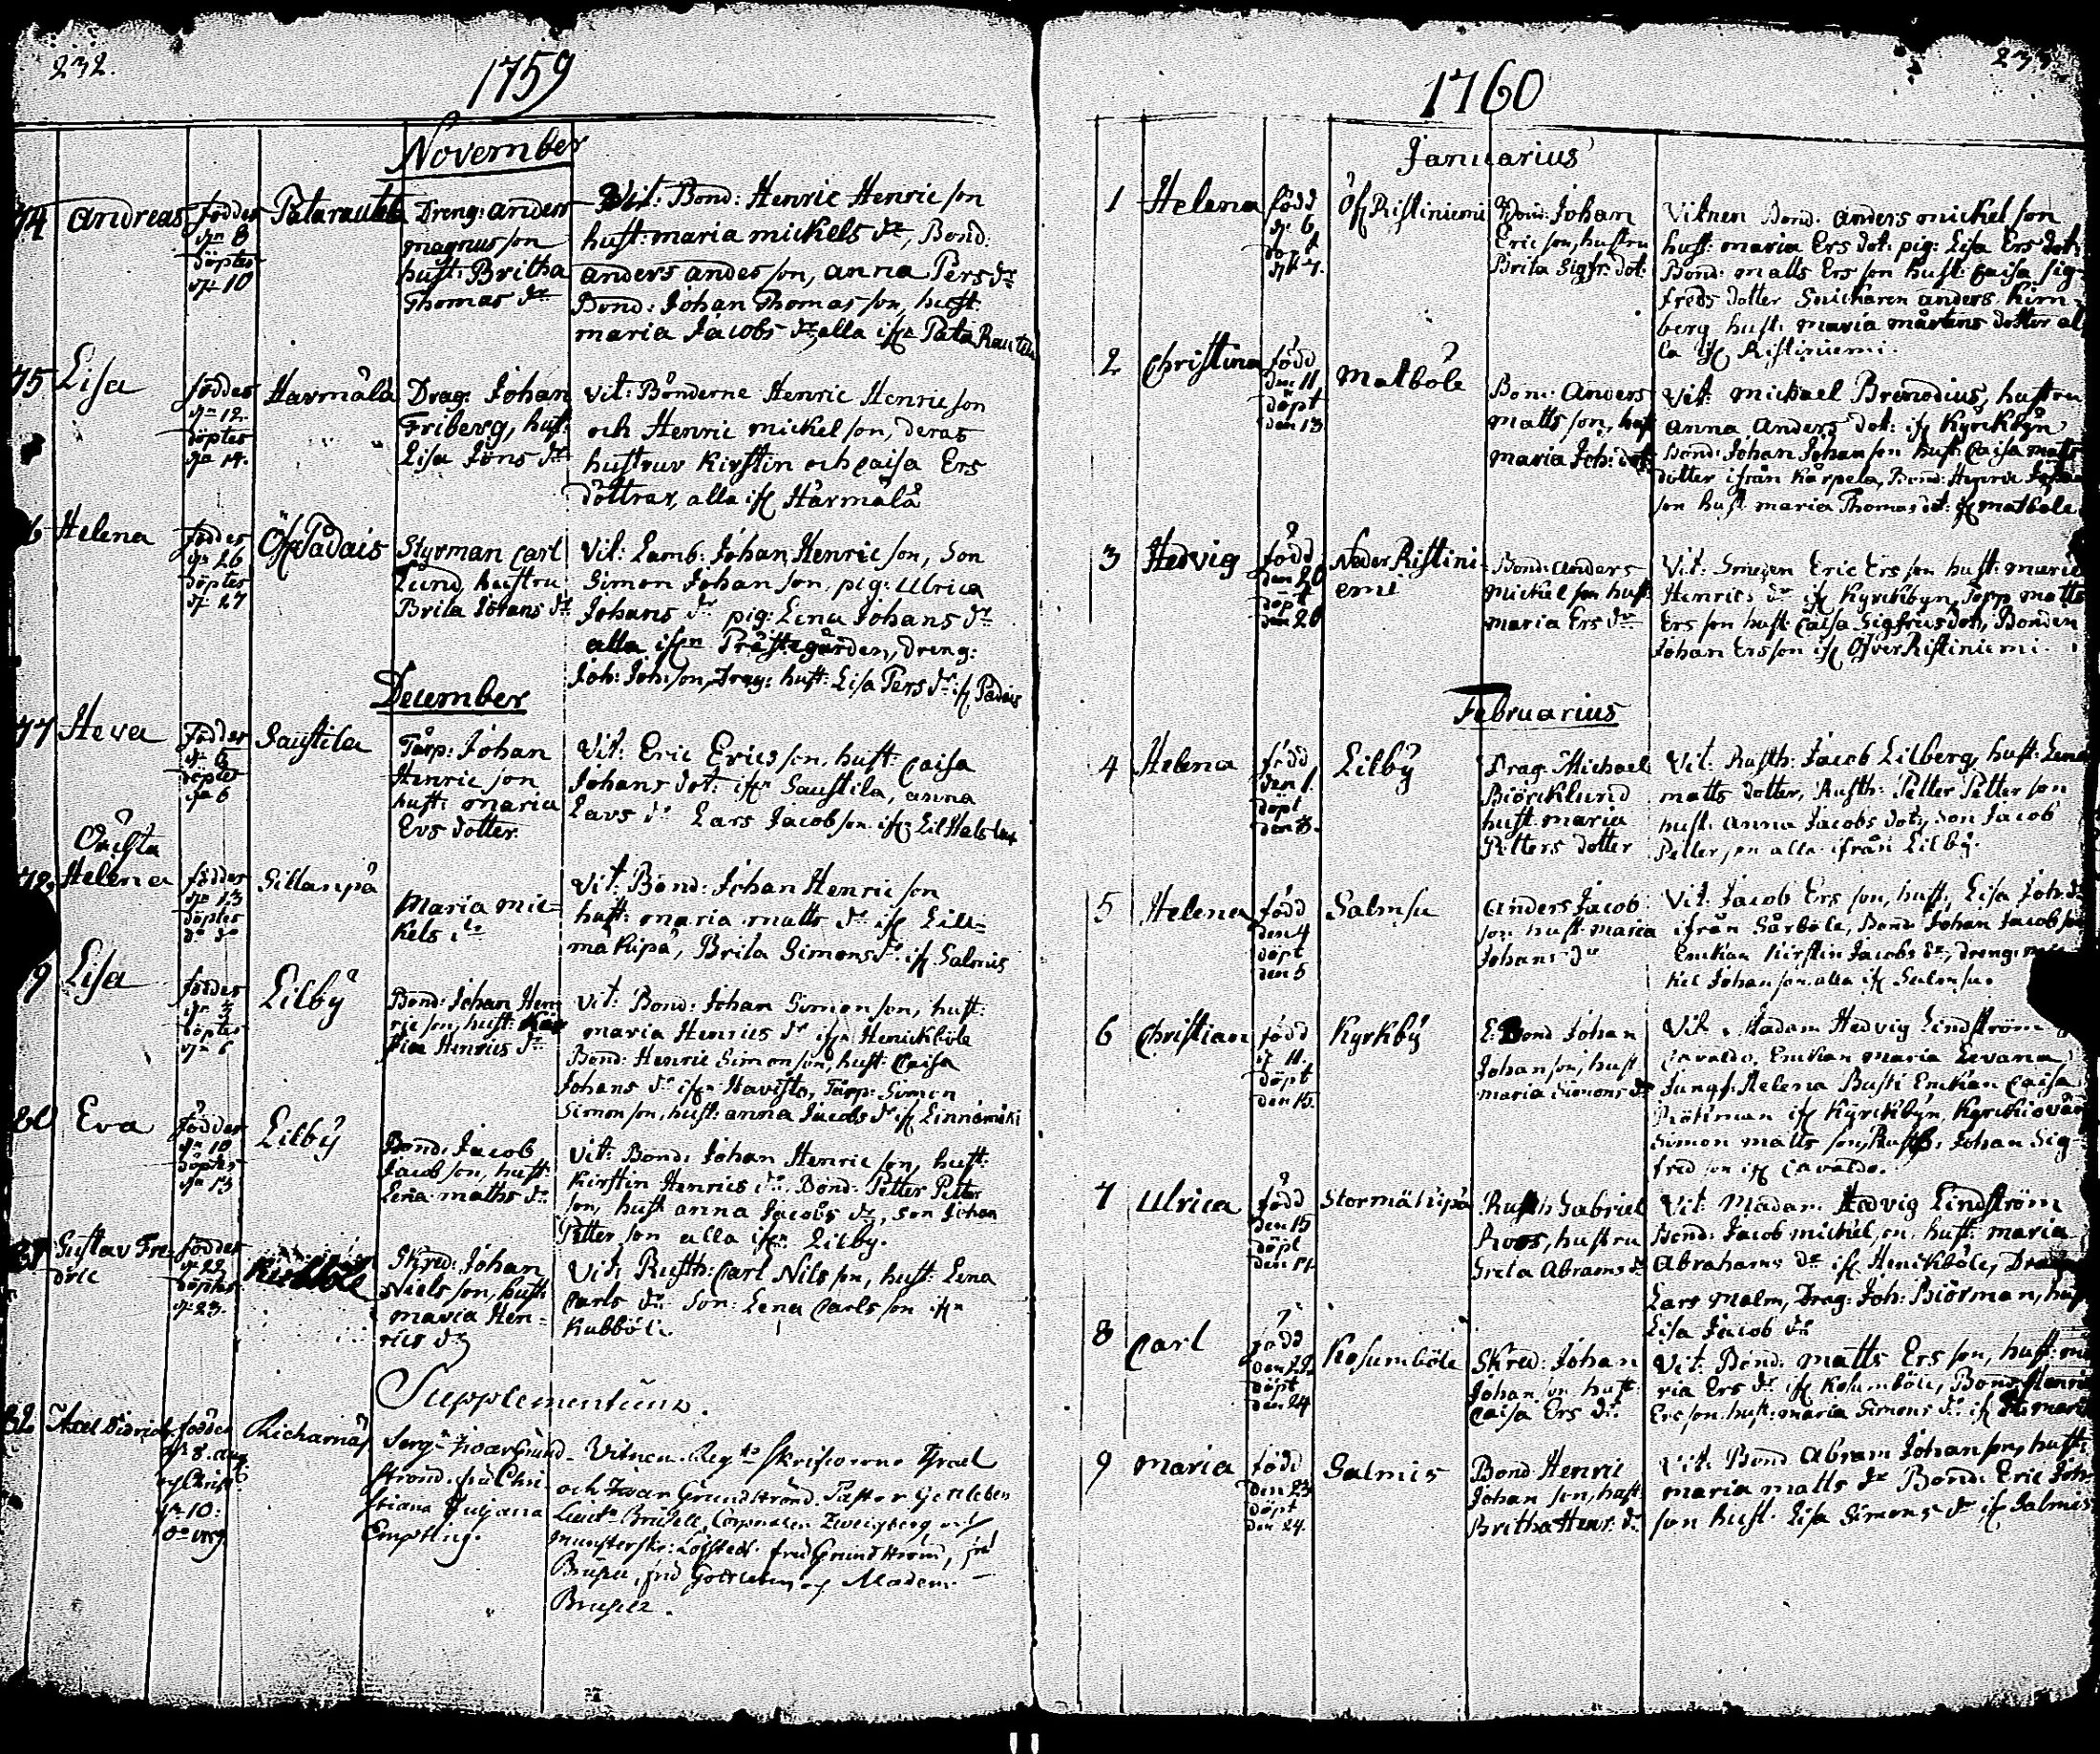 232.
1759
November
74 Andreas föddes dn 8 döptes dn 10 Patarautila
Dreng: Anders
magnus son
hust: Britha
Thomas dr
Vit: Bond: Henric Henric son
hust: maria mickels dr, Bond:
anders andes son, anna Pers dr
Bond: Johan Thomas son, hust:
maria Jacobs dr, alla ifn Pata Rautila
75 Lisa föddes dn 12. döptes dn 14. Harmåla
Drag: Johan
Friberg, hust:
Lisa Jöns dr
Vit: Bönderne Henric Henric son
och Henric mickel son, deras
hustrur Kirstin och Caisa Ers
döttrar, alla if Harmåla
6 Helena föddes dn 26 döptes dn 27 Öf Pådais
Styrman Carl
Lund, hustru
Brita Johans dr
Vit: Lamb: Johan Henric son, Son
Simon Johan son, pig: Ulrica
Johans dr pig: Lena Johans dr
alla ifn Prästegården, dreng:
Joh: Joh: son, Drag: hust: Lisa Pers dr if Padais
December
77 Heva föddes döptes dn 6 Saustila
Tårp: Johan
Henric son
hust: maria
Ers dotter.
Vit: Eric Erics son, hust: Caisa
Johans dot: ifn Saustila, anna
Lars dr Lars Jacob son if
Helena föddes dn 13 döptes do do Sillanpå
Maria mic-
kels
Vit: Bond: Johan Henric son
hust: maria matts dr if Lill-
makipå, Brita Simons dr if Salmis
9 Lisa föddes döptes dn 6 Lilbÿ
Bond: Johan Hen-
ric son, hust:
Henrics dr
Vit: Bond: Johan Simon son, hust:
maria Henrics dr ifn Henickböle
Bond: Henric Simon son, hust: Caisa
Johans dr ifn Havisto, Tårp: Simon
Simon son, hust: anna Jacobs dr if Linnamäki
80 Eva föddes dn 10 döptes dn 13 Lilbÿ
Bond: Jacob
Jacob son, hust:
Lena maths dr
Vit: Bond: Johan Henric son, hust:
Kirstin Henrics dr. Bond: Petter Petter
son, hust anna Jacobs dr, son Johan
Petter son alla ifn Lilby.
81 Gustav Fre- föddes dn 22 döptes dn 23.
dric
Skred: Johan
Niels son, hust:
maria Hen-
rics dr
Vit: Rusth: Carl Nils son, hust: Lena
Carls dr Son: Lena Carls son ifn
Kubböle.
Supplementum.
82 Axel Didrich föddes dn 8. aug. och Christ: dn 10. Richarnäs
Serg: Ivar Grund-
strönd, fru Chri-
stiana Juliana
Empting.
Vitnen. Reg: Skrifvarne Israel
och Ivar Grundströnd. Pastor Gottleben
Munsterskr: Löfstedt. fru Grundström, fru
Madem:
1760
Januarius
1 Helena född dn 6 döpt dn 7. Öf Ristiniemi
Bond: Johan
Eric son, hustru
Brita Sigfr: dot:
Vitnen Bond: anders mickel son
hust: maria Ers dot: pig: Lisa Ers dot:
Bond: matts Ers son hust: Caisa Sig-
freds dotter Snickaren anders Kim-
berg hust: maria mårtens dotter al-
la if Ristiniemi.
2 Christina född den 11. döpt den 13 Matböle
Bon: Anders
matts son, hust
maria Joh: dot:
Vit: mickael Brenodius, hustru
anna Anders dot: if Kÿrckbÿn
Bond: Johan Johan son hust: Caisa matts
dotter ifrån Kårpela, Bond: Henric Johan
son hust maria Thomas dot: if matböle
3 Hedvig född den 20 döpt den 20 Neder Ristini-
emi
Bond: anders
Mickel son hust:
maria Ers dr
Vit: Smeden Eric Ers son hust: maria
Henrics dr if Kyrckbyn, Torp matts
Ers son hust Caisa Sigfrids dot, Bonden
Johan Ersson if Öfver Ristiniemi.
Februarius
4 Helena född den 1. döpt Lilbÿ
Drag: Michael
Biörcklund
hust maria
Petters dotter
Vit: Rusth: Jacob Lilberg, hust: Lena
matts dotter, Rusth: Petter Petter son
hust: anna Jacobs dot, son Jacob
Petter son alla ifrån Lilbÿ.
5 Helena född den 4 döpt den 5 Salmsu
Anders Jacob
son hust maria
Johans dr
Vit: Jacob Ers son, hust, Lisa Joh: dr
ifrån Sårböle, Bond: Johan Jacob son
Enckan Kirstin Jacobs dr, dreng: mic-
kel Johan son alla if Salmsu.
6 Christian född d. 11. döpt den 15. Kyrkbÿ
Bond Johan
Johan son, hust
maria Simons dr
Vit: Madam Hedvig Lindström
Cavaldo, Enckan maria Levana
Jungf: Helena Busti Enckan Caisa
if Kÿrckbÿn, Kyrckiovär
Simon matts son, Rusth: Johan Sig-
frid son if Cavaldo.
7 Ulrica född den 15 döpt den 17 Stormähipå
Rusth Gabriel
Roos, hustru
Greta Abrams dr
Vit: Madam Hedvig Lindström
Bond: Jacob mickel son hust: maria
Abrahams dr if Henickböle, Drag
Lars Malm, Drag: Joh: Biörman, hust
Lisa Jacob dr
8 Carl född den 22 döpt den 24 Kosumböle
Skred: Johan
Johan son hust:
Caisa Ers dr
Vit: Bond: matts Ers son, hust: ma-
ria Ers dr if Kosumböle, Bond: Henric
Ers son hust: maria Simons dr if
9 Maria född den 23 döpt den 24. Salmis
Bond Henric
Johan son, hust
Britha Henr: dr
Vit: Bond Abram Johan son, hust:
maria matts dr Bond: Eric Joh:
son hust. Lisa Simons dr if Salmis